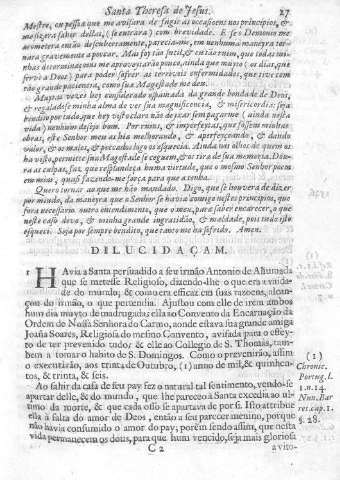 Santa Theresa de Jesus. 27
Mestre, ou pessoa que me avisara de fugir as occasioens nos principios, &
me fizera sahir dellas, (se entrara) com brevidade. E se o Demonio me
acometera então descubertamente, parecia-me, em nenhuma maneyra tor-
nara gravemente a peccar. Mas foy tão sutil, & eu tão ruim, que todas mi-
nhas determinaçoens me aproveytarão pouco, ainda que muyto (os dias, que
servi a Deos) para poder sofrer as terriveis enfermidades, que tive com
tão grande paciencia, como sua Magestade me deu.
Muytas vezes hey considerado espantada da grande bondade de Deos,
& regalado se minha alma de ver sua magnificencia, & misericordia: seja
bendito por tudo, que hey visto claro não deyxar sem pagarme (ainda nesta
vida) nenhum desejo bom. Por ruins, & imperfeytas, que fossem minhas
obras, este Senhor meu as hia melhorando, & aperfeyçoando, & dando
valor, & os males, & peccados logo os escondia. Ainda nos olhos de quem os
ha visto, permitte sua Magestade se ceguem, & os tira de sua memoria. Dou-
ra as culpas, faz que resplandeça huma virtude, que o mesmo Senhor poem
em mim, quasi fazendo-me força para que a tenha.
Quero tornar ao que me hão mandado. Digo, que se houvera de dizer
por miudo, da maneyra que o Senhor se havia comigo nestes principios, que
fora necessario outro entendimento, que o meu, para saber encarecer, o que
neste caso devo, & minha grande ingratidão, & maldade, pois tudo isto
esqueci. Seja por sempre bendito, que tanto me ha sofrido. Amen.
DILUCIDAÇAM.
1 Havia a Santa persuadido a seu irmão Antonio de Ahumada
que se metesse Religioso, dizendo-lhe o que era a vaida-
de do mundo; & como era efficaz em suas razoens, alcan-
çou do irmão, o que pertendia. Ajustou com elle de irem ambos
hum dia muyto de madrugada; ella ao Convento da Encarnação da
Ordem de Nossa Senhora do Carmo, aonde estava sua grande amiga
Joana Soares, Religiosa do mesmo Convento, avisada para o effey-
to de ter prevenido tudo; & elle ao Collegio de S. Thomás, tam-
bem a tomar o habito de S. Domingos. Como o prevenirão, assim
o executarão, aos trinta de Outubro, (1) anno de mil, & quinhen-
tos, & trinta, & seis.
Ao sahir da casa de seu pay fez o natural tal sentimento, vendo-se
apartar delle, & do mundo, que lhe pareceo à Santa excedia ao ul-
timo da morte, & que cada osso se apartava de por si. Isto attribue
ella à falta do amor de Deos, então a seu parecer menino, porque
não havia consumido o amor do pay; porèm sendo assim, que nesta
vida permanecem os dous, para que hum vencido, seja mais gloriosa
(1)
Chronic.
Portug. l.
1. n. 14.
Nun. Bar
res. cap. 1.
§. 28.
C 2 a vito-